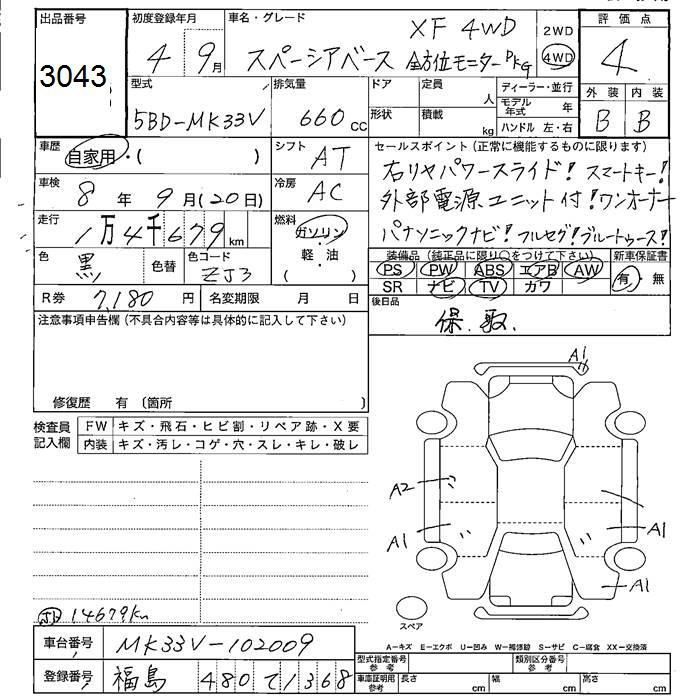 出品番号 初度登録年月 車名・グレード XF 4WD 2WD 評価点
3043 4 9月 スペーシアベース 全方位モニターPKG 4WD 4
型式 排気量 ドア 定員 人 ディーラー・並行 外装 内装
5BD-MK33V 660cc 形状 積載 kg モデル年式 年 B B
ハンドル 左・右
車歴 自家用・( ) シフト AT セールスポイント(正常に機能するものに限ります)
右リヤパワースライド! スマートキー!
車検 8年9月(20日) 冷房 AC 外部電源ユニット付!ワンオーナー
走行 1万4千679km 燃料 ガソリン・軽・油 ( ) パナソニックナビ!フルセグ!ブルートゥース!
色 黒 色替 色コード ZJ3 装備品(純正品に限り○をつけて下さい) 新車保証書
PS PW ABS エアB AW 有・無
SR ナビ TV カワ
R券 7,180円 名変期限 月 日 後日品
保.取.
注意事項申告欄(不具合内容等は具体的に記入して下さい)
修復歴 有 (箇所
検査員記入欄 FW キズ・飛石・ヒビ割・リペア跡・X要
内装 キズ・汚レ・コゲ・穴・スレ・キレ・破レ
A1
A2
A1 A1
A1
スペア
14679km
A-キズ E-エクボ U-凹み W-補修跡 S-サビ C-腐食 XX-交換済
車台番号 MK33V-102009 型式指定番号参考 類別区分番号参考
登録番号 福島 480 て 1368 車庫証明用参考 長さ cm 幅 cm 高さ cm